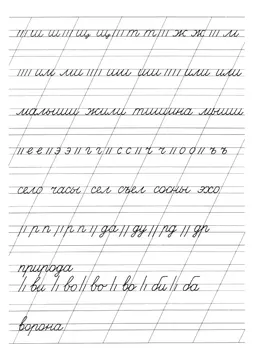 ш ш щ щ т т ж ж м
им ми ши ши или или
малыши жили тишина мыши
е е э э ч ч с с ч ч о о ъ ъ
село часы сел съел сосны эхо
р п р п да ду рд др
природа
ви во во во би ба
ворона